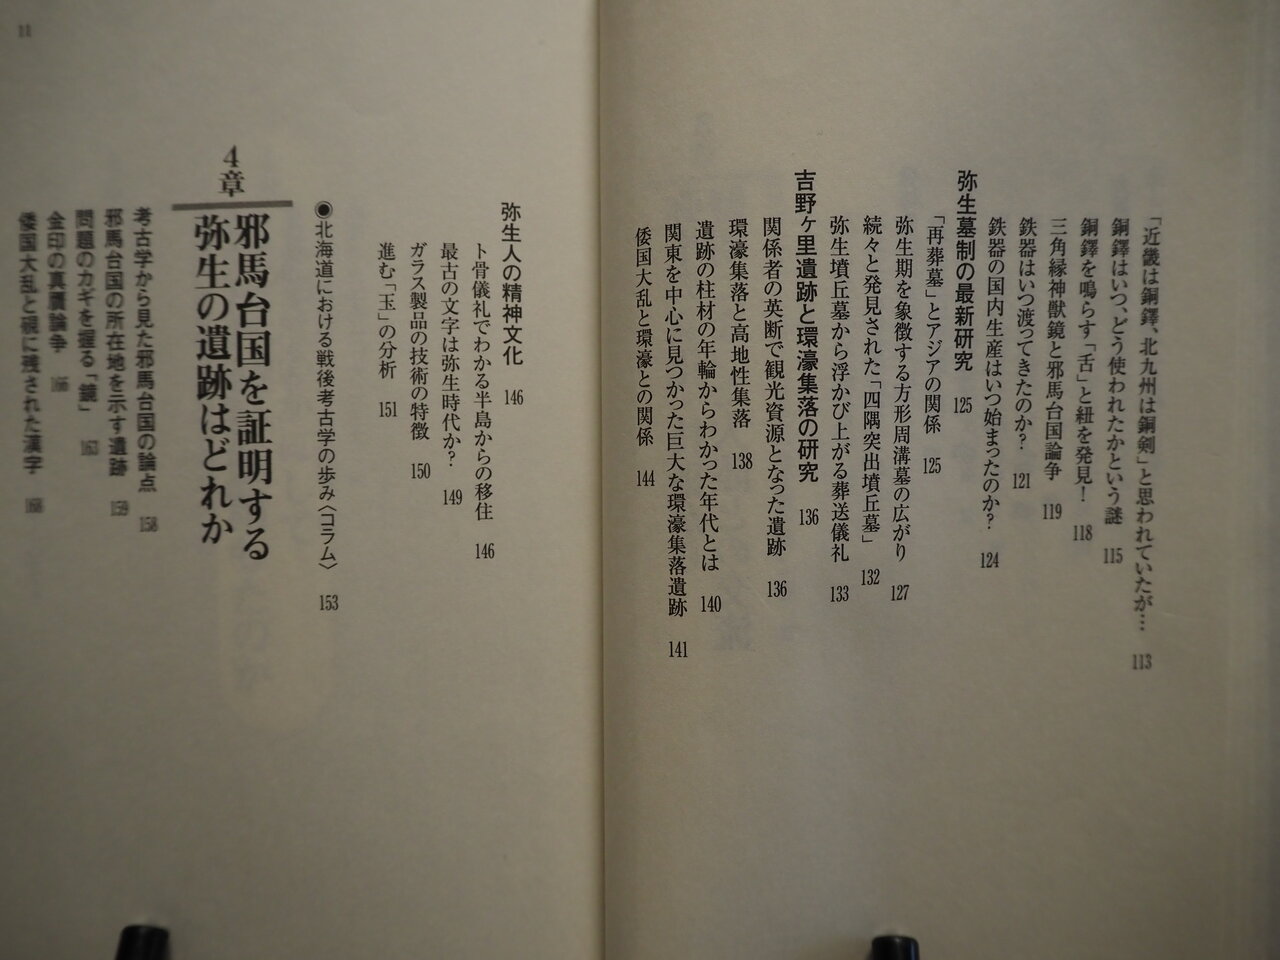 「近畿は銅鐸、北九州は銅剣」と思われていたが… 113
銅鐸はいつ、どう使われたかという謎 115
銅鐸を鳴らす「舌」と紐を発見! 118
三角縁神獣鏡と邪馬台国論争 119
鉄器はいつ渡ってきたのか? 121
鉄器の国内生産はいつ始まったのか? 124
弥生墓制の最新研究 125
「再葬墓」とアジアの関係 125
弥生期を象徴する方形周溝墓の広がり 127
続々と発見された「四隅突出墳丘墓」 132
弥生墳丘墓から浮かび上がる葬送儀礼 133
吉野ヶ里遺跡と環濠集落の研究 136
関係者の英断で観光資源となった遺跡 136
環濠集落と高地性集落 138
遺跡の柱材の年輪からわかった年代とは 140
関東を中心に見つかった巨大な環濠集落遺跡 141
倭国大乱と環濠との関係 144
弥生人の精神文化 146
ト骨儀礼でわかる半島からの移住 146
最古の文字は弥生時代か? 149
ガラス製品の技術の特徴 150
進む「玉」の分析 151
◉北海道における戦後考古学の歩み〈コラム〉 153
4章
邪馬台国を証明する
弥生の遺跡はどれか
考古学から見た邪馬台国の論点 158
邪馬台国の所在地を示す遺跡 159
問題のカギを握る「鏡」 163
金印の真贋論争 166
倭国大乱と硯に残された漢字 168
11